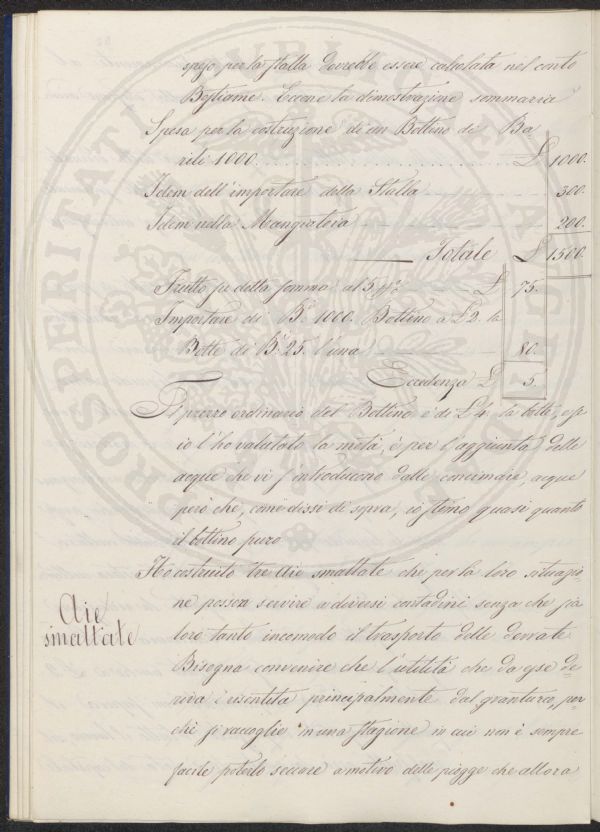 spesa per la stalla dovrebbe essere calcolata nel conto
Bestiame. Eccone la dimostrazione sommaria
Spesa per la costruzione di un Bottino di Ba
rili 1000. £ 1000.
Idem dell'importare della Stalla 300.
Idem nella Mangiatoia 200.
Totale £ 1500.
Frutto su detta somma al 5 p% £ 75.
Importare di B. 1000. Bottino a £ 2. la
Botte di B. 25. l'una 80.
Eccedenza £ 5.
Il prezzo ordinario del Bottino è di £ 4. la botte, e se
io l'ho valutato la metà, è per l'aggiunta delle
acque che vi s'introducono dalle concimaie, acque
però che, come dissi di sopra, io stimo quasi quanto
il bottino puro
Ho costruito tre aie smaltate che per la loro situazio-
ne posson servire a diversi contadini senza che sia
loro tanto incomodo il trasporto delle derrate
Aie
smaltate
Bisogna convenire che l'utilità che da esse de-
riva è risentita principalmente dal granturco, per
chè si raccoglie in una stagione in cui non è sempre
facile poterlo seccare a motivo delle piogge che allora
PROSPERITATI PUBLICAE AUGENDAE